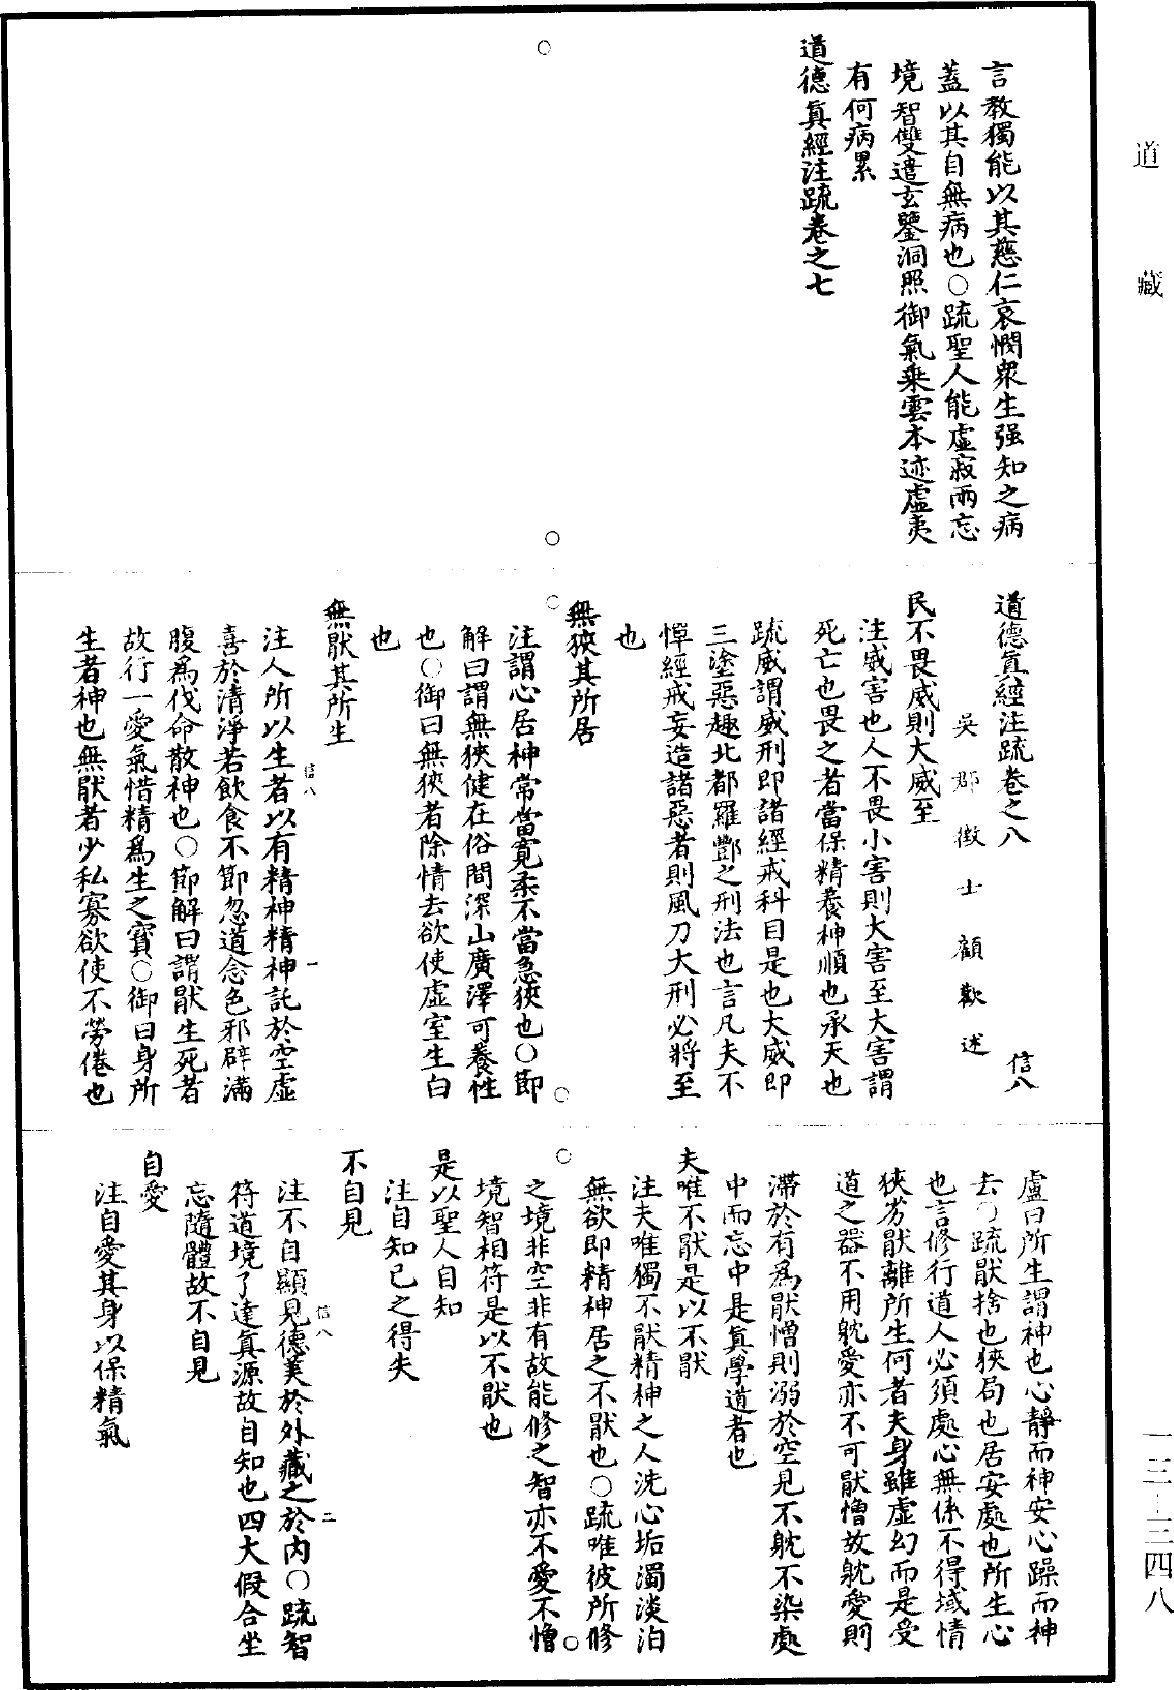 道藏
言教獨能以其慈仁哀憫衆生强知之病
蓋以其自無病也○疏聖人能虛寂兩忘
境智雙遣玄鑒洞照御氣乗雲本迹虛夷
有何病累
道德眞經注疏卷之七
道德眞經注疏卷之八 信八
吳郡徴士顧歡述
民不畏威則大威至
注威害也人不畏小害則大害至大害謂
死亡也畏之者當保精養神順也承天也
疏威謂威刑即諸經戒科目是也大威即
三塗惡趣北都羅酆之刑法也言凡夫不
憚經戒妄造諸惡者則風刀大刑必將至
也
無狹其所居
注謂心居神常當寛柔不當急狹也○節
解曰謂無狹健在俗間深山廣澤可養性
也○御曰無狹者除情去欲使虛室生白
也
無厭其所生
信八 一
注人所以生者以有精神精神託於空虛
喜於清淨若飲食不節忽道念色邪辟滿
腹爲伐命散神也○節解曰謂厭生死者
故行一愛氣惜精爲生之寶○御曰身所
生者神也無厭者少私寡欲使不勞倦也
盧曰所生謂神也心靜而神安心躁而神
去○疏厭捨也狹局也居安處也所生心
也言修行道人必須處心無係不得域情
狹劣厭離所生何者夫身雖虛幻而是受
道之器不用躭愛亦不可厭憎故躭愛則
滯於有爲厭憎則溺於空見不躭不染處
中而忘中是眞學道者也
夫唯不厭是以不厭
注夫唯獨不厭精神之人洗心垢濁淡泊
無欲即精神居之不厭也○疏唯彼所修
之境非空非有故能修之智亦不愛不憎
境智相符是以不厭也
是以聖人自知
注自知已之得失
不自見
信八 二
注不自顯見德美於外藏之於内○疏智
符道境了達眞源故自知也四大假合坐
忘隨體故不自見
自愛
注自愛其身以保精氣
一三—三四八